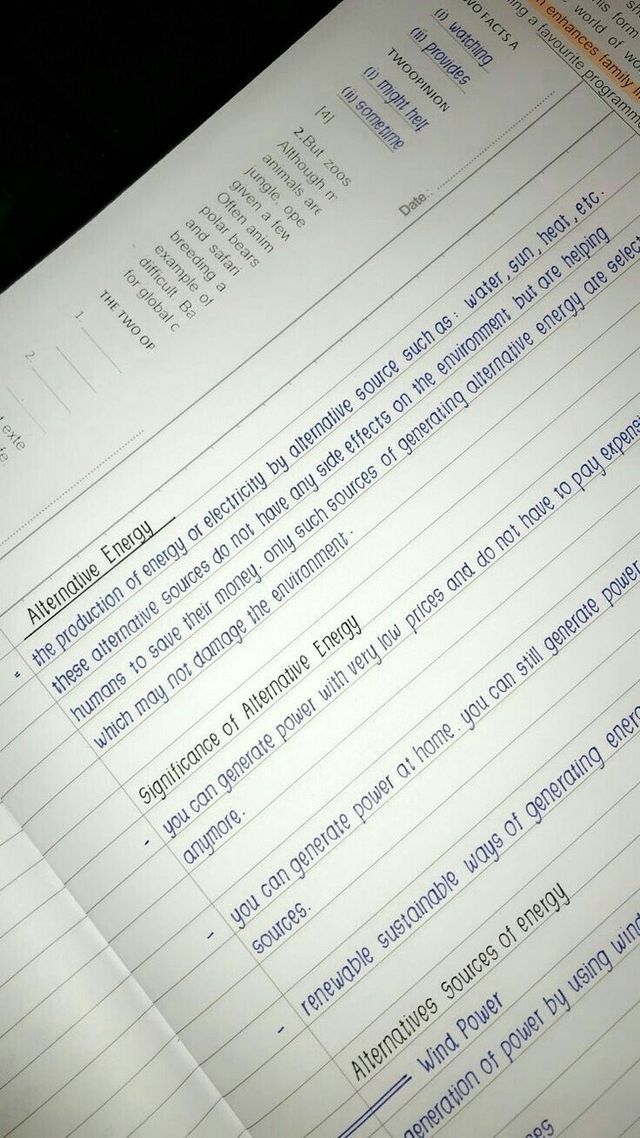 his form
world of wo
n enhances family li
ing a favourite programm
WO FACTS A
(i) watching
(ii) provides
TWO OPINION
(i) might help
(ii) sometime
[4]
2.But zoos
Although m
animals are
jungle, ope
given a few
Often anim
polar bears
and safari
breeding a
example of
difficult. Ba
for global c
THE TWO OP
1.
2.
t exte
fe.
Date:
Alternative Energy
= the production of energy or electricity by alternative source such as : water, sun, heat, etc.
these alternative sources do not have any side effects on the environment but are helping
humans to save their money. only such sources of generating alternative energy are select
which may not damage the environment.
Significance of Alternative Energy
- you can generate power with very low prices and do not have to pay expensi
anymore.
- you can generate power at home. you can still generate power
sources.
- renewable sustainable ways of generating energ
Alternatives Sources of energy
Wind Power
generation of power by using wind